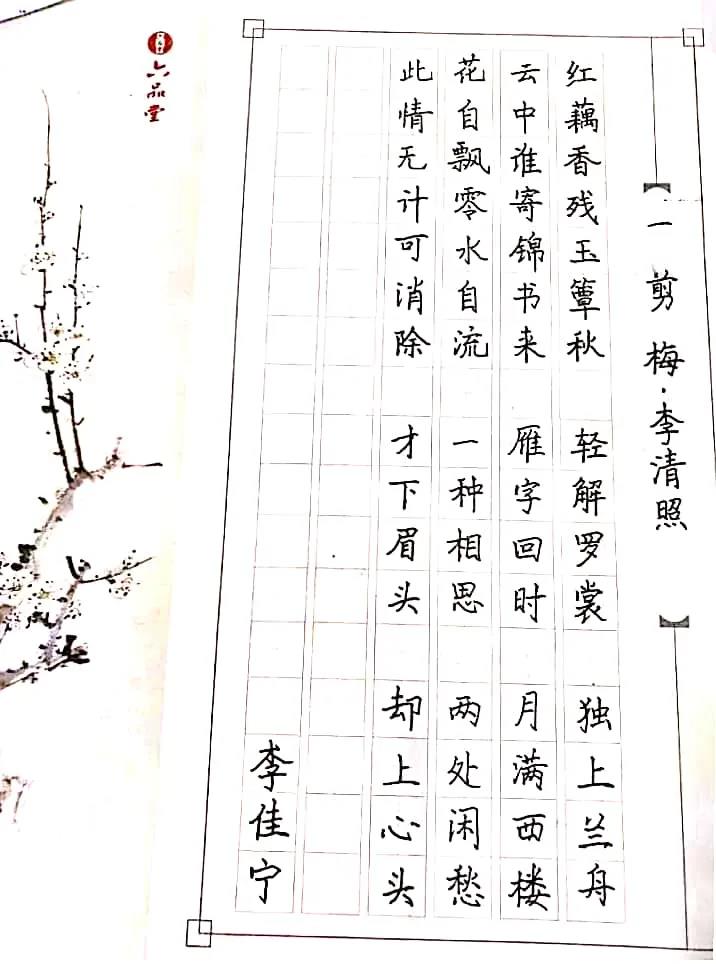 一剪梅·李清照
红藕香残玉簟秋 轻解罗裳 独上兰舟
云中谁寄锦书来 雁字回时 月满西楼
花自飘零水自流 一种相思 两处闲愁
此情无计可消除 才下眉头 却上心头
李佳宁
六品堂